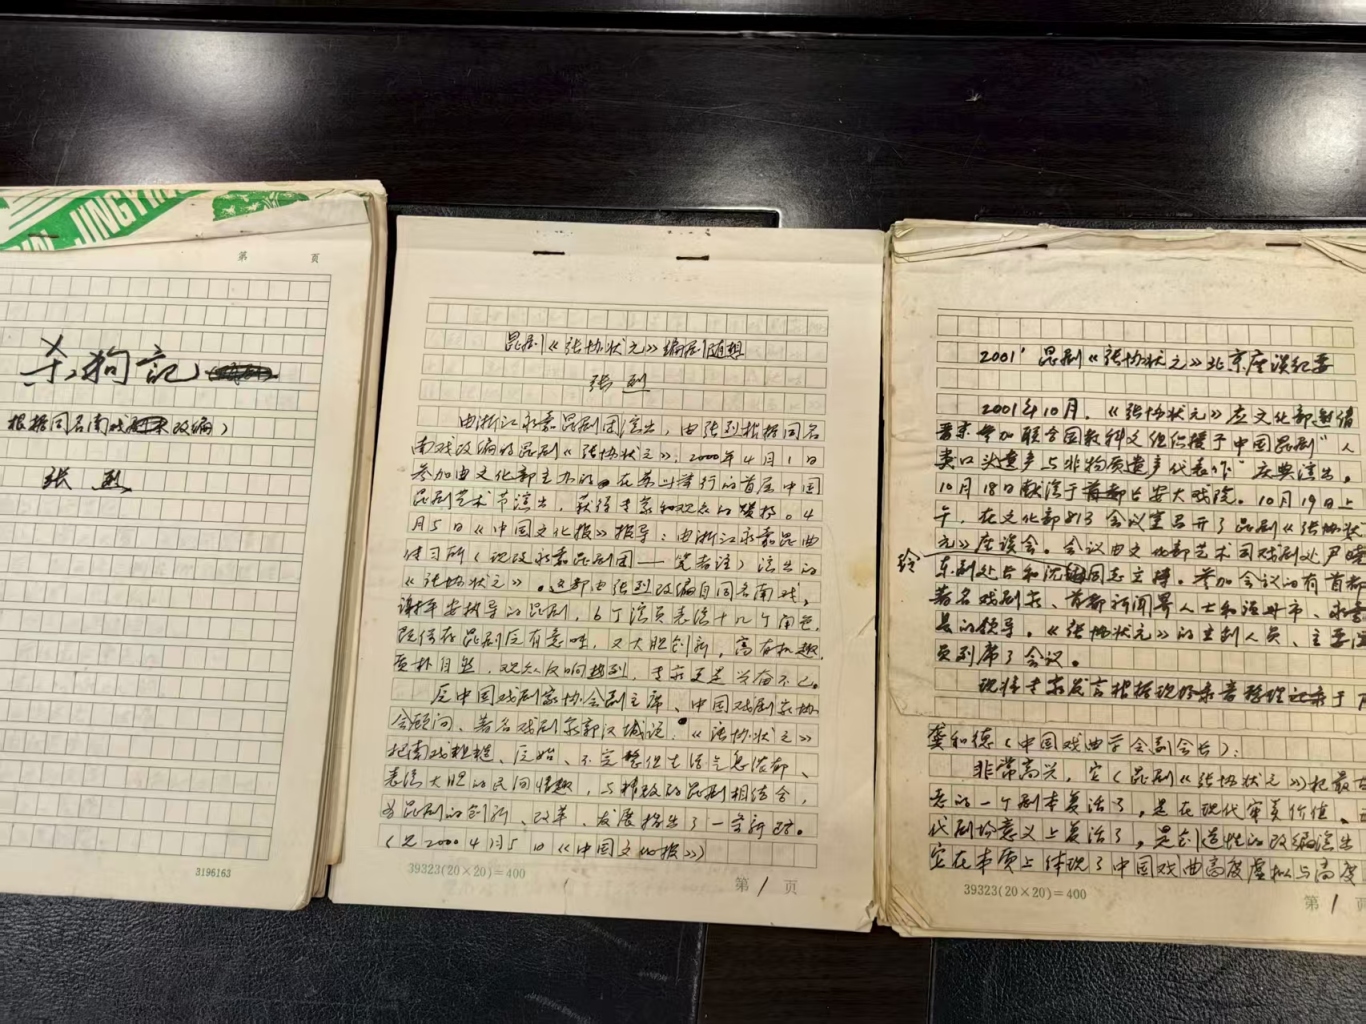 JINGYING
第 页
杀狗記
根据同名南戏改编）
张烈
3196163
昆剧《张协状元》编剧随想
张烈
由浙江永嘉昆剧团演出，由张烈根据同名
南戏改编的昆剧《张协状元》，2000年4月1日
参加由文化部主办的，在苏州举行的首届中国
昆剧艺术节演出，获得专家和观众的赞扬。4
月5日《中国文化报》报导：由浙江永嘉昆曲
传习所（现改永嘉昆剧团——笔者注）演出的
《张协状元》。这部由张烈改编自同名南戏，
谢平安执导的昆剧，6个演员表演十几个角色，
既传存昆剧原有意味，又大胆创新，富有机趣，
质朴自然，观众反响热烈，专家更是兴奋不已。
原中国戏剧家协会副主席、中国戏剧家协
会顾问、著名戏剧家郭汉城说：《张协状元》
把南戏粗糙、原始、不完整但生活气息浓郁、
表演大胆的民间情趣，与精致的昆剧相结合，
为昆剧的创新、改革、发展探出了一条新路。
（见2000年4月5日《中国文化报》）
39323(20×20)=400
第 1 页
2001'昆剧《张协状元》北京座谈纪要
2001年10月，《张协状元》应文化部邀请
晋京参加联合国教科文组织授于中国昆剧"人
类口头遗产与非物质遗产代表作"庆典演出，
10月18日献演于首都长安大戏院。10月19日上
午，在文化部813会议室召开了昆剧《张协状
元》座谈会。会议由文化部艺术司戏剧处尹晓
东副处长和沈玲同志主持。参加会议的有首都
著名戏剧家、首都新闻界人士和温州市、永嘉
县的领导。《张协状元》的主创人员、主要演
员列席了会议。
现将专家发言根据现场录音整理记录于
龚和德（中国戏曲学会副会长）：
非常高兴，它（昆剧《张协状元》）把最古
老的一个剧本复活了，是在现代审美价值、
代剧场意义上复活了，是创造性的改编演出
它在本质上体现了中国戏曲高度虚拟与高度
39323(20×20)=400
第 1 页